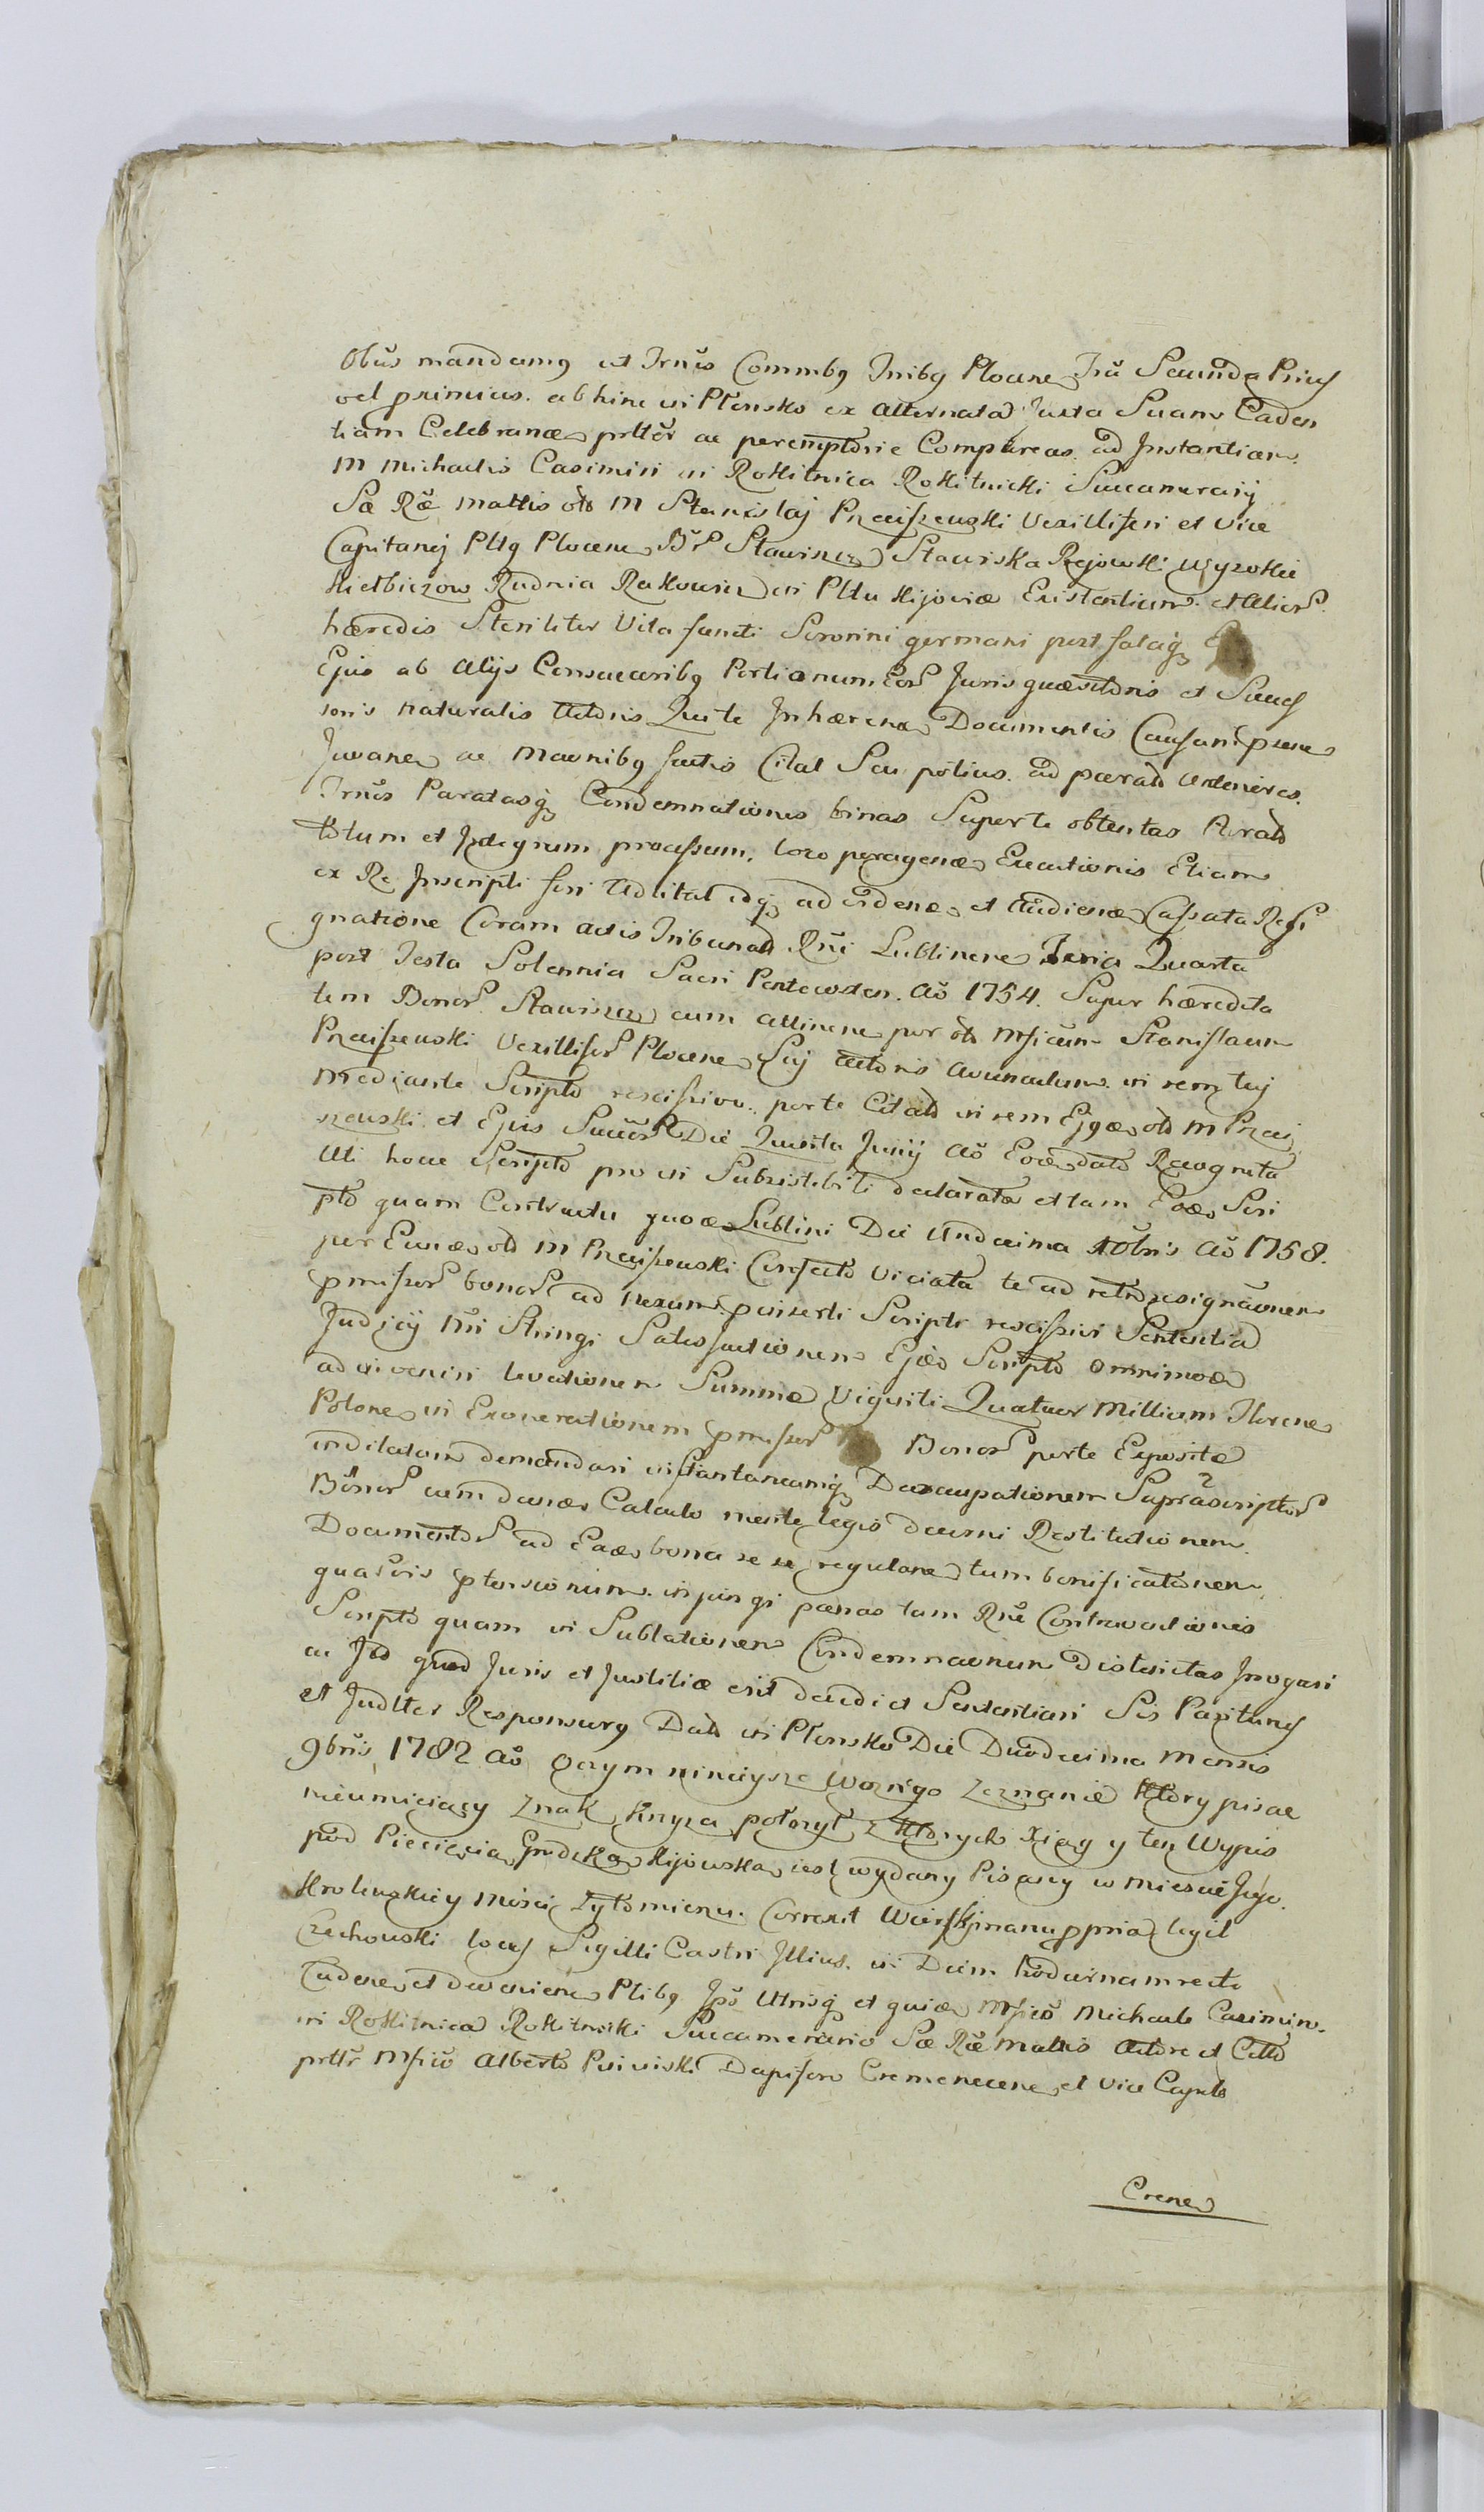 obūs mandamq ut Trnīs Commbq Inibq Plocens Fiā Secunda Priq
vel primius. abhinc in Płonsko ex alternata Juxta Suam Caden
tiam Celebranæ, prlter ac peremptorie Compareas. ad Instantiam
M Michaelis Casimiri in Rokitnica Rokitnicki Succamerarij
Sæ Ræ Mattis olo M Stanislaj Przeciszewski Vexilliferi et Vice
Capitanej Pltq Plocens Br Stawiszcz Stawiska Rejowki Wysokie
Kiełbiczow Rudnia Rakowicz in Pltu Kijoviæ Existentium. et Alior
hæredis Steriliter Vita functi Sororini germani post fataq
Ejus ab Alijs Consuccoribq Portionum Eor Juris quæsitoris et Succes
soris Naturalis Actoris Qui te Inhærenæ Documentis Causam psens
Juvanes ac Movnibq factis Citat Seu potius. ad parato Attenieres.
Trnūs Paratasq Condemnationes binas Super te obtentas Parato
totum et Integrum processum, loco peragenæ Executionis Etiam
ex Re Inscripti fieri Adcitat idq ad videnæ et Audienæ Cassata Resi
gnatione Coram actis Tribunalo Rni Lublinens Feria Quarta
post Festa Solennia Sacri Pentecosten. Aō 1754. Super hæredita
tem Bonor Stawiszcz cum attinens per olo Mficum Stanislaum
Przeciszewski Vexillifer Plocens Suj Actoris Avunculum in rem tuj
Mediante Scripto rescissivo. per te Citato in rem Ejqæ olo M Przeci
szewski et Ejus Succor Die Quinta Junij Aō Eoæ dato Recognita
Uti hocce Scripto pro in Subsistibili declarata et tam Eoæ Scri
pto quam Contractu quoæ Lublini Die Undecima Xbris Aō 1758.
per Eunæ olo M Przeciszewski Confecto Viciata te ad retroresignāonem
pmissor bonor ad Nexum pinserti Scripti rescissivi Sententia
Judicij Nri Stringi Satisfactionem Ejæo Scripto omnimoæ
ad inveniri levationem Summæ Viginti Quatuor Millium Florens
Polone in Exonerationem pmissor Bonor per te Exposita
indilatam demandari instantaneamq Deoccupationem Suprascriptor
Bonor cum danæ Calculo mente legis decerni Restitutionem
Documentor ad Eaæ bona se se regulane tum bonificationem
quarvis ptensionum. injungi pænas tam Rne Contraventionis
Scripto quam in Sublationem Condemnaonum Districtas Irrogari
ac Id quod Juris et Justitiæ erit decidi et Sententiari Sis Pariturq
et Judlter Responsurq Dato in Płonsko Die Duodecima Mensis
9bris 1782 Aō oczym ninieysze Wozngo zeznanie Ktory pisac
nieumieiący znak Krzyza połozył z Ktorych Xiąg y ten Wypis
pod Pieczęcią Grodzką Kijowską iest wydany Pisany w Miescie Jego
Krolewskiey Mosci Zytomierzu. Correxit manu ppria legit
Czechowski locus Sigilli Castri Illius. in Diem hodiernam recte
Cadene et devenienæ Ptibq Ipō Utrisq et quiæ Mfico Michaele Casimiro
in Rokitnica Rokitnicki Succamerario Sæ Ræ Mattis Actore et Citto
prltr Mfico Alberto Dapifero Cremenecens et Vice Capnto
Crenes